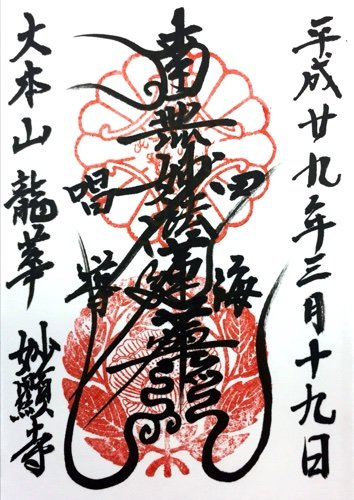 平成廿九年三月十九日
四海
南無妙法蓮華經
唱導
大本山 龍華 妙顯寺